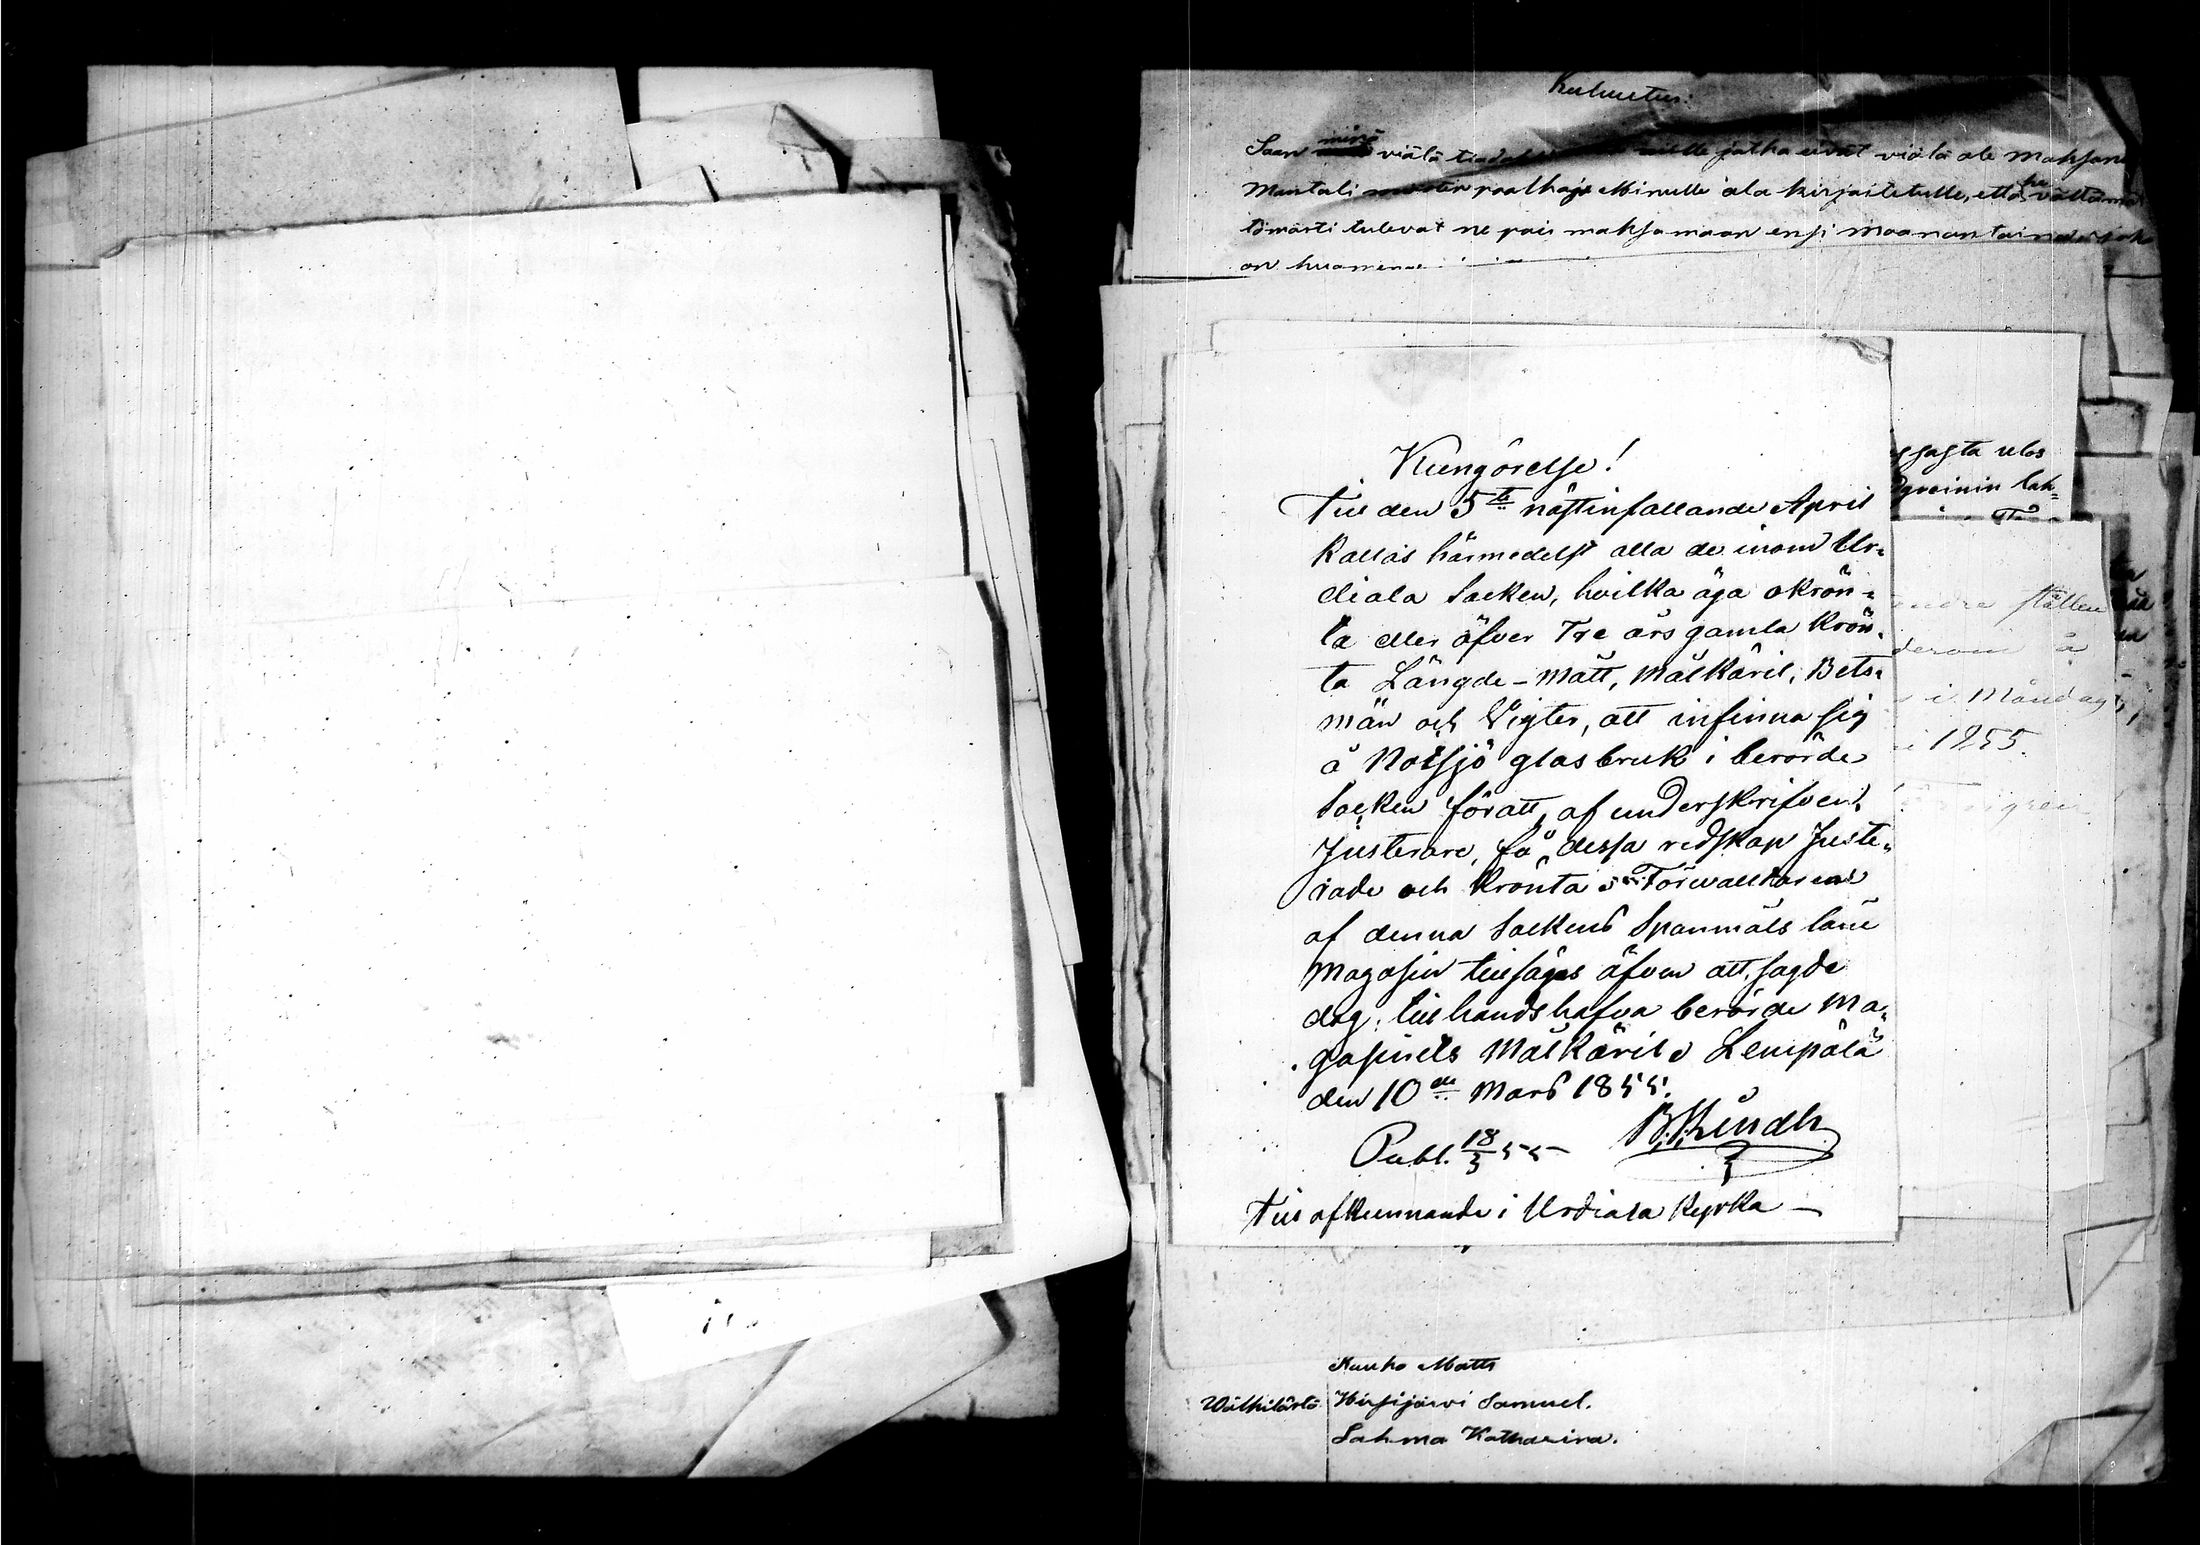 Kuulutus:
Saan minä vielä jotka eivät vielä ole maksane
Mantali raalhoja Minulle ala kirjoitetulle, että he vältämä
tömästi tulevat ne pois maksamaan ensi maanantaina joka
on huomena
Kungörelse!
Till den 5te nästinfallande April
Kallas härmedelst alla de inom Ur=
diala Socken, hvilka äga okrön=
ta eller öfver Tre års gamla Krön=
ta Längde-Mått, Målkäril, Bets=
män och Vigter, att infinna sig
å Notsjö glasbruk i berörde
Socken för att, af underskrifven
Justerare, få dessa redskap Juste=
rade och krönta; Förvalltaren
af denna Sockens Spanmåls låne
Magasin tillsäges äfven att, sagde
dag, tillhandshafva berörde Ma=
gasinets Målkäril. Lempälä
den 10de Mars 1855.
B. Lindh
Publ. 18/3 55
Till afkunnande i Urdiala Kyrka —
ssasta ulos
greinin lah=
andre ställen
derom å
i Måndag
1855.
Kauko Matts
Wälkilästä Hirsijärvi Samuel.
Lahma Katharina.